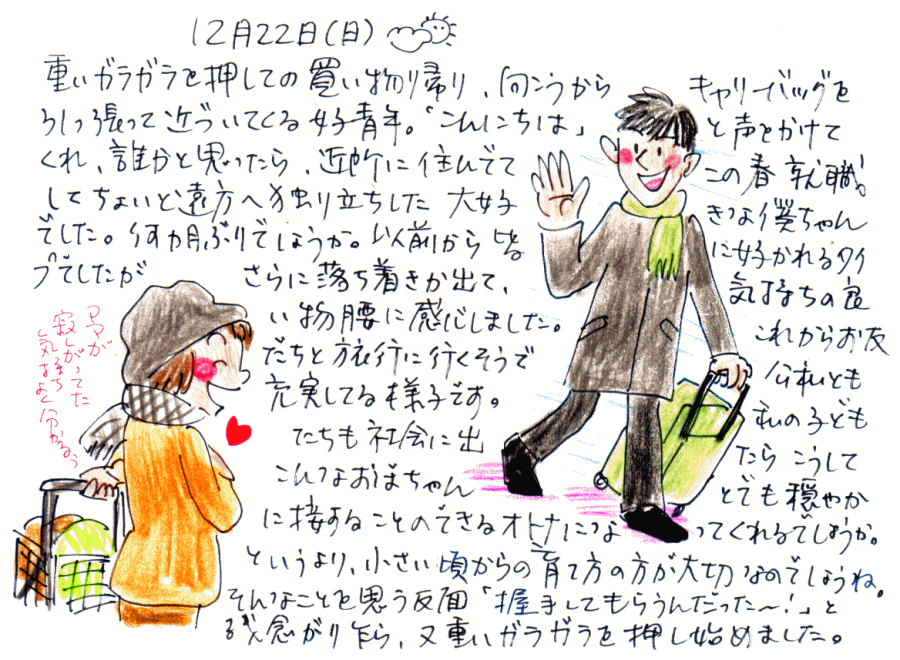 12月22日(日)
重いガラガラを押しての買い物り帰り、向こうから キャリーバッグを
引っ張って近づいてくる好青年。「こんにちは」と声をかけて
くれ、誰かと思ったら、近所に住んでて この春就職
してちょいと遠方へ独り立ちした 大好きな僕ちゃん
でした。何ヵ月ぶりでしょうか。以前から皆に好かれるタイ
プでしたが さらに落ち着きが出て、気持ちの良
い物腰に感じました。これからお友
だちと旅行に行くそうで 公私とも
充実してる様子です。 私の子ども
たちも社会に出たら こうして
こんなおばちゃんとでも穏やか
に接することのできるオトナになってくれるでしょうか。
というより、小さい頃からの育て方の方が大切なのでしょうね。
そんなことを思う反面「握手してもらうんだった〜!」と
残念がり乍ら、又重いガラガラを押し始めました。
寂しがってた
気持ちよく分かるぅ